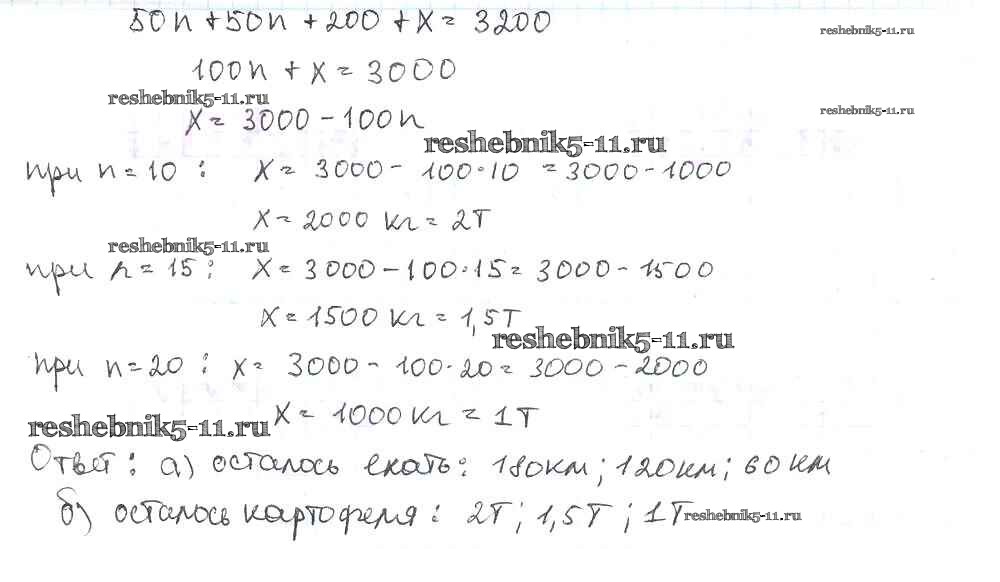 50n + 50n + 200 + x = 3200
reshebnik5-11.ru
100n + x = 3000
reshebnik5-11.ru
x = 3000 - 100n
reshebnik5-11.ru
reshebnik5-11.ru
при n = 10 : x = 3000 - 100·10 = 3000 - 1000
x = 2000 кг = 2т
reshebnik5-11.ru
при n = 15 : x = 3000 - 100·15 = 3000 - 1500
x = 1500 кг = 1,5т
reshebnik5-11.ru
при n = 20 : x = 3000 - 100·20 = 3000 - 2000
x = 1000 кг = 1т
reshebnik5-11.ru
Ответ : а) осталось ехать : 180км ; 120км ; 60 км
б) осталось картофеля : 2т ; 1,5т ; 1т
reshebnik5-11.ru